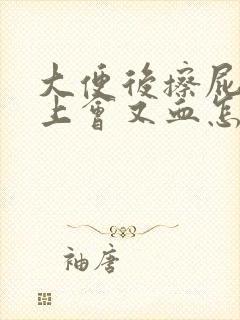 大便後擦屁
上會又血怎
袖唐